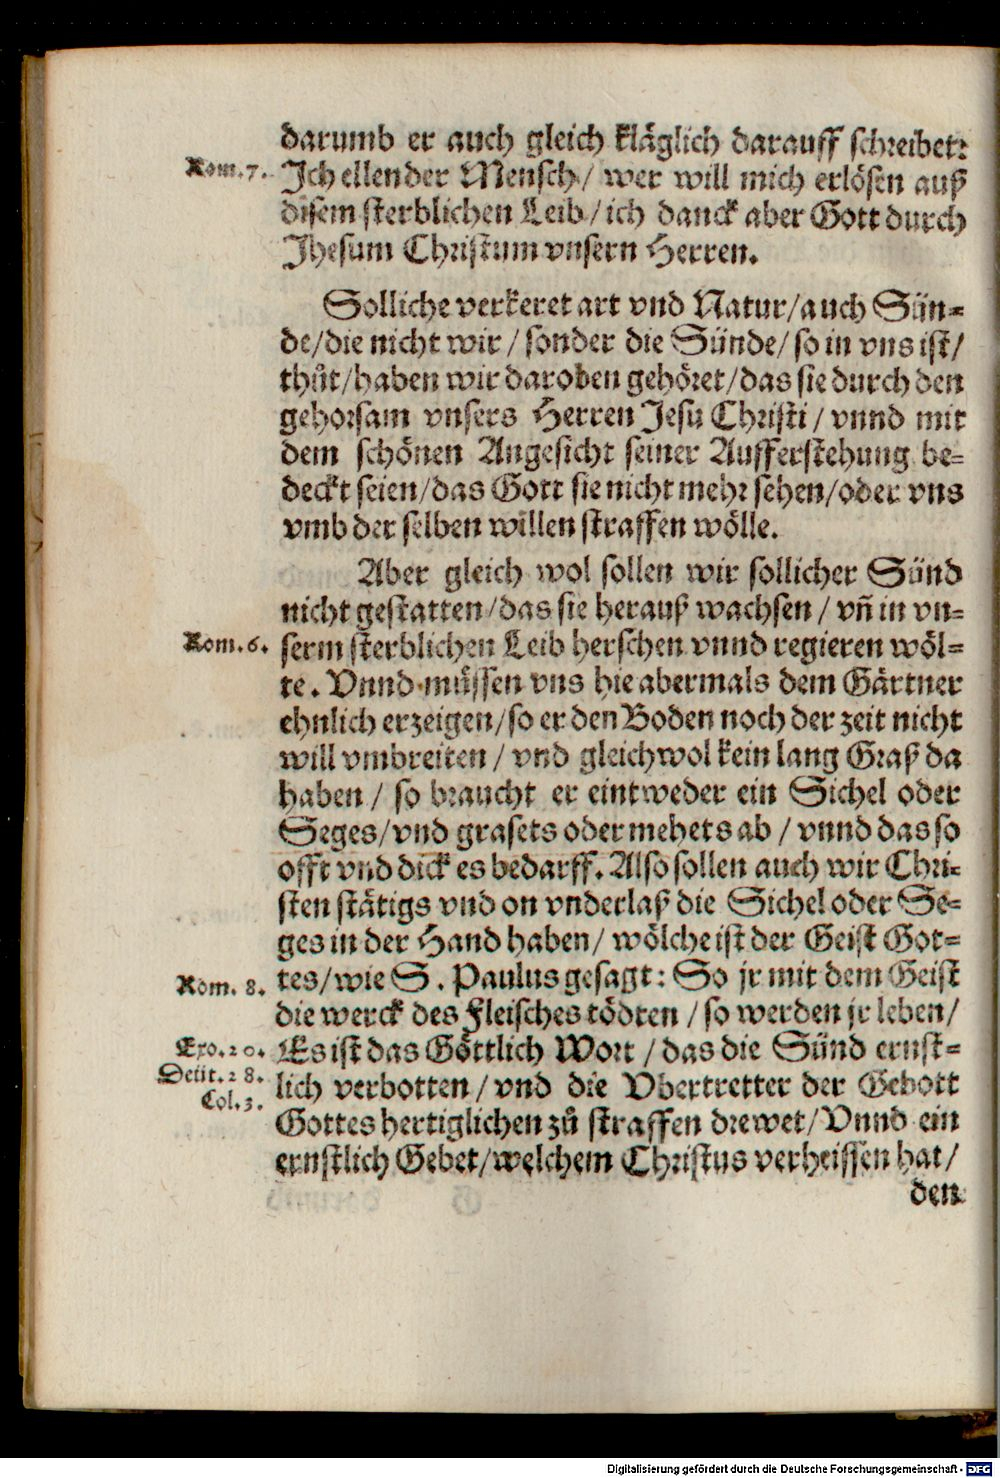 darumb er auch gleich kläglich darauff schreibet:
Rom. 7. Ich ellender Mensch / wer will mich erlösen auß
disem sterblichen Leib / ich danck aber Gott durch
Jhesum Christum vnsern Herren.
Solliche verkeret art vnd Natur / auch Sün-
de / die nicht wir / sonder die Sünde / so in vns ist /
thůt / haben wir daroben gehöret / das sie durch den
gehorsam vnsers Herren Jesu Christi / vnnd mit
dem schönen Angesicht seiner Aufferstehung be-
deckt seien / das Gott sie nicht mehr sehen / oder vns
vmb der selben willen straffen wölle.
Aber gleich wol sollen wir sollicher Sünd
nicht gestatten / das sie herauß wachsen / vñ in vn-
Rom. 6. serm sterblichen Leib herschen vnnd regieren wöl-
te. Vnnd müssen vns hie abermals dem Gärtner
ehnlich erzeigen / so er den Boden noch der zeit nicht
will vmbreiten / vnd gleichwol kein lang Graß da
haben / so braucht er eintweder ein Sichel oder
Seges / vnd grasets oder mehets ab / vnnd das so
offt vnd dick es bedarff. Also sollen auch wir Chri-
sten stätigs vnd on vnderlaß die Sichel oder Se-
ges in der Hand haben / wölche ist der Geist Got-
Rom. 8. tes / wie S. Paulus gesagt: So jr mit dem Geist
die werck des Fleisches tödten / so werden jr leben /
Exo. 20. Es ist das Göttlich Wort / das die Sünd ernst-
Deut. 28. lich verbotten / vnd die Vbertretter der Gebott
Col. 3. Gottes hertiglichen zů straffen drewet / Vnnd ein
ernstlich Gebet / welchem Christus verheissen hat /
den
Digitalisierung gefördert durch die Deutsche Forschungsgemeinschaft - DFG